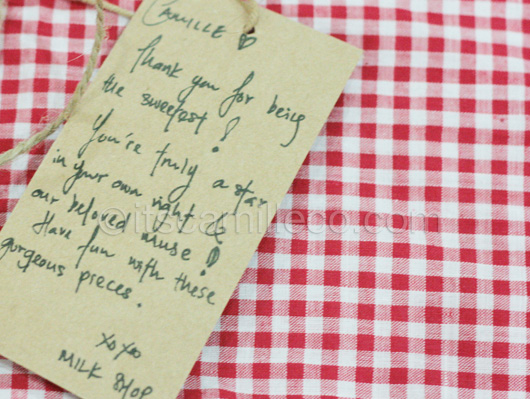 CAMILLE ♡
Thank you for being
the sweetest!
You're truly a star
in your own right &
our beloved muse!
Have fun with these
gorgeous pieces.
xoxo
MILK SHOP
© itscamilleco.com